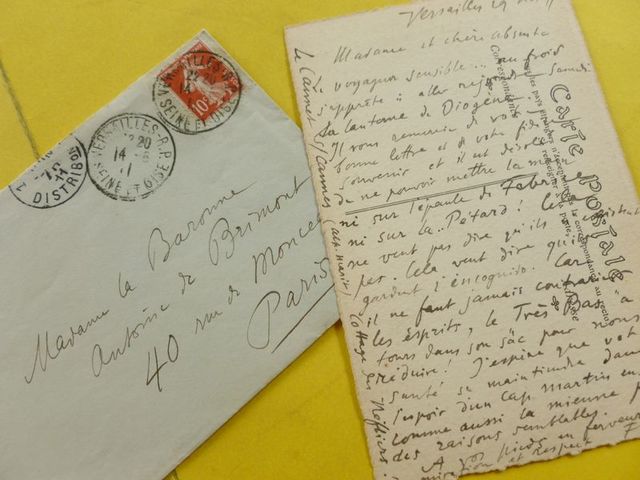 VERSAILLES
SEINE ET OISE
10
VERSAILLES-R.P.
20
14 - 6
11
SEINE ET OISE
DISTRIB
Madame la Baronne
Antoine de Brimont
40 rue de Monceau
Paris
Versailles 29
Madame et chère absente
voyageur sensible... au froid
s'apprête à aller
samedi
la lanterne de Diogène
Il vous remercie de votre
bonne lettre et de votre fidèle
souvenir et il est désolé
de ne pouvoir mettre la main
ni sur l'épaule de
ni sur la Pétard! Cela
ne veut pas dire qu'ils
pas. Cela veut dire qu'ils
gardent l'incognito. Car
il ne faut jamais contrarier
les esprits, le Très Bas a
tours dans son sac pour nous
réduire! J'espère que votre
santé se maintiendra dans
l'espoir d'un cap martin
comme aussi la mienne
des raisons semblables.
A vos pieds en ferveur
et respect
Le Cannet s/Cannes
Cottage des Néfliers
CARTE POSTALE
Correspondance